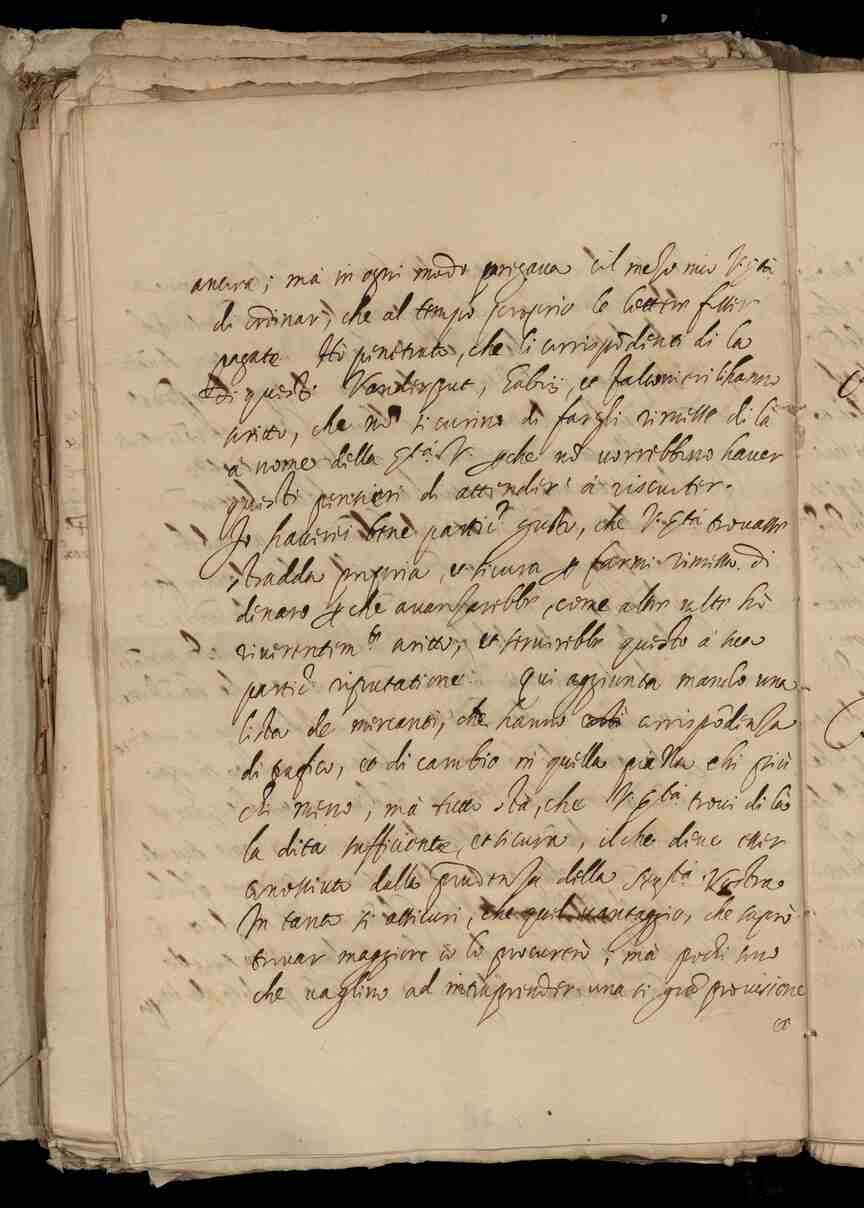 ancora; mà in ogni modo pregava col mezo mio V. Stà
di ordinar, che al tempo proprio le lettere fosser
pagate. Hò penetrato, che li corrispõdenti di là
di questi Vanderput, e Falconieri li hanno
scritto, che nõ si curino di fargli rimesse di là
à nome della Stà. V. perche nõ vorrebbeno haver
questi pensieri di attender' à riscuoter.
Io haverei bene partic.r gusto, che V. Stà trovasse
stradda propria, et sicura per farmi rimessa di
denaro perche avanzarebbe, come altre volte hò
riverentem.te scritto, et servirebbe questo à sua
partic.r riputatione. Qui aggiunta mando una
lista de mercanti, che hanno corrispõdenza
di trafico, et di cambio in quella piazza chi più
chi meno, mà tutto stà, che V. Stà trovi di là
la dita sufficiente, et sicura, il che deve esser
conosciuto dalla prudenza della Sertà Vostra.
In tanto si assicuri, che quel vantaggio, che saprò
trovar maggiore io lo procurerò; mà pochi sono
che vaglino ad intraprender una si grãde provisione
et